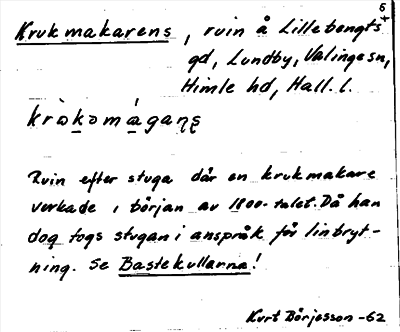 5
Krukmakarens, ruin å Lillebengts
gd, Lundby, Valinge sn,
Himle hd, Hall. l.
Ruin efter stuga där en krukmakare
verkade i början av 1800-talet. Då han
dog togs stugan i anspråk för linbryt-
ning. Se Bastekullarna!
Kurt Börjesson -62